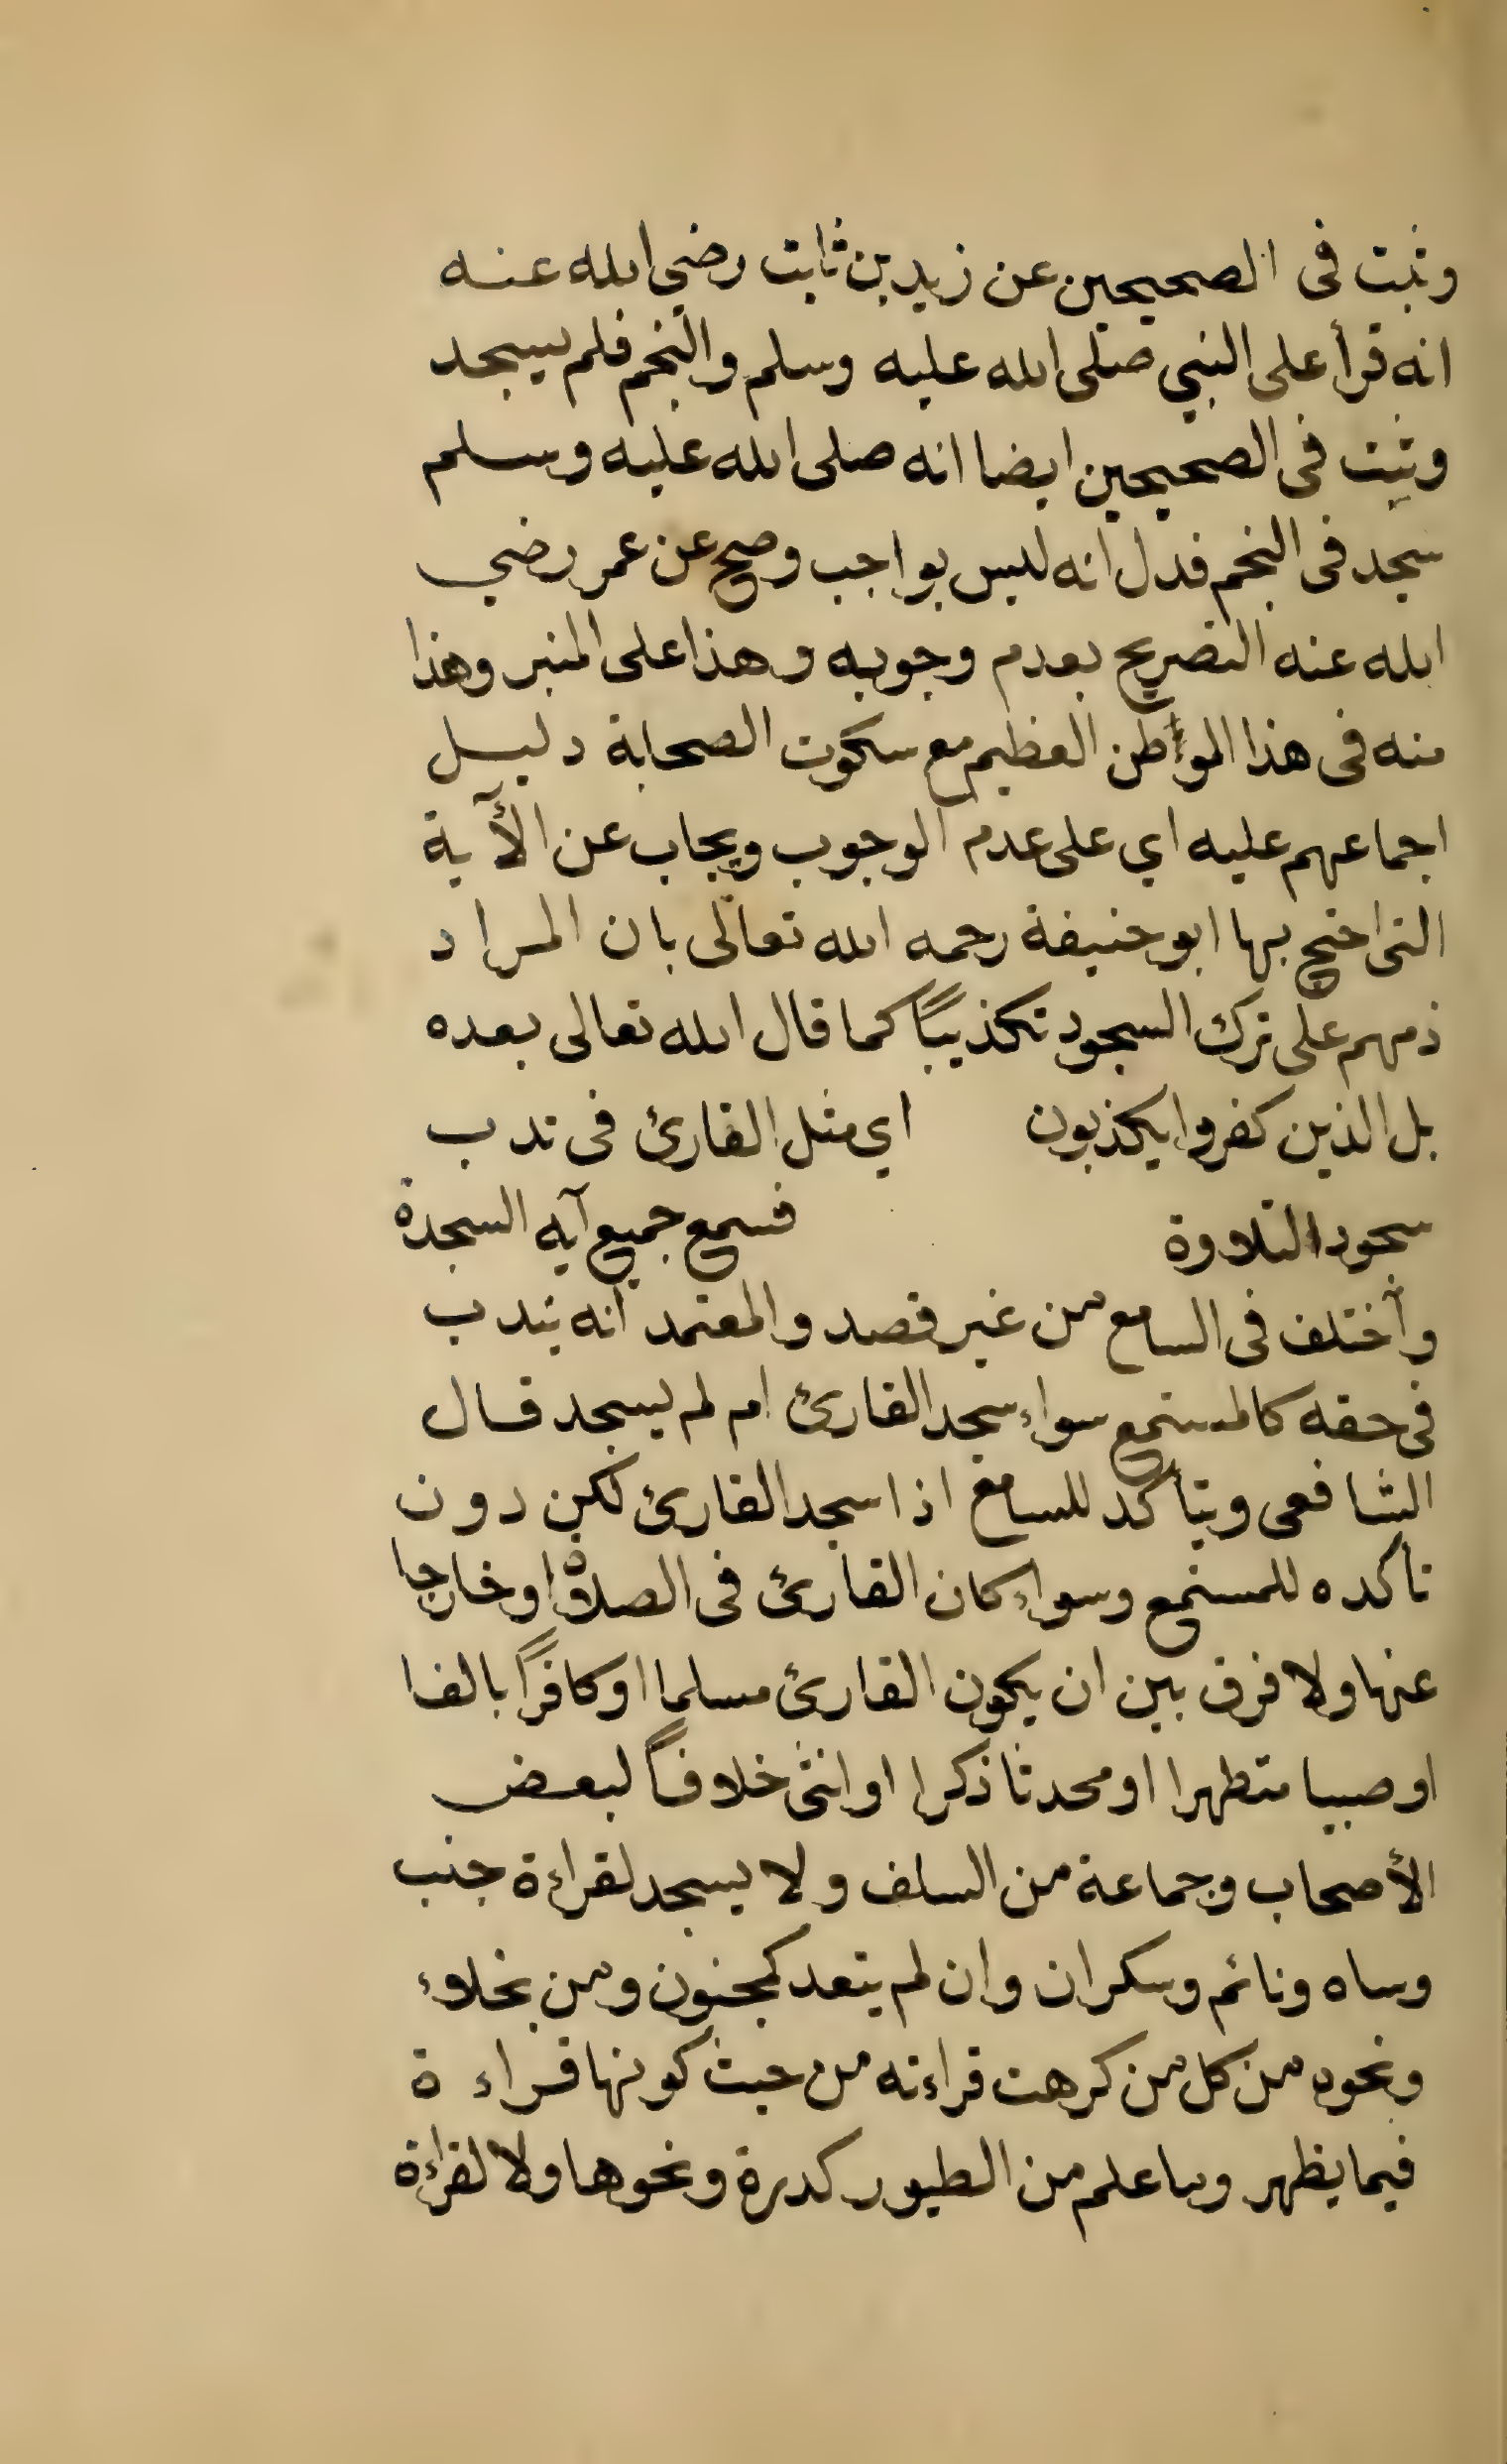 وثبت فى الصحيحين عن زيد بن ثابت رضي الله عنه
انه قرأ على النبي صلى الله عليه وسلم والنجم فلم يسجد
وثبت فى الصحيحين ايضا انه صلى الله عليه وسلم
سجد فى النجم فدل انه ليس بواجب وصح عن عمر رضي
الله عنه التصريح بعدم وجوبه وهذا على المنبر وهذا
منه فى هذا المواطن العظيم مع سكوت الصحابة دليل
اجماعهم عليه اي على عدم الوجوب ويجاب عن الأآية
التى احتج بها ابو حنيفة رحمه الله تعالى بان المراد
ذمهم على ترك السجود تكذيبًا كما قال الله تعالى بعده
بل الذين كفروا يكذبون اي مثل القارئ فى ندب
سجود التلاوة فسمع جميع آيه السجدة
وأختلف فى السامع من غير قصد والمعتمد انه يندب
فى حقه كالمستمع سواء سجد القارئ ام لم يسجد قال
الشافعى ويتأكد للسامع اذا سجد القارئ لكن دون
تأكده للمستمع وسواء كان القارئ فى الصلاة او خارجا
عنها ولا فرق بين ان يكون القارئ مسلما او كافرًا بالغا
او صبيا متطهرا او محدثا ذكرا او انثى خلافاً لبعض
الأصحاب وجماعة من السلف ولا يسجد لقراءة جنب
وساه ونائم وسكران وان لم يتعد كمجنون ومن بخلاء
ونحوه من كل من كرهت قراءته من حيث كونها قراءة
فيما يظهر وما علم من الطيور كدرة ونحوها ولا لقراءة